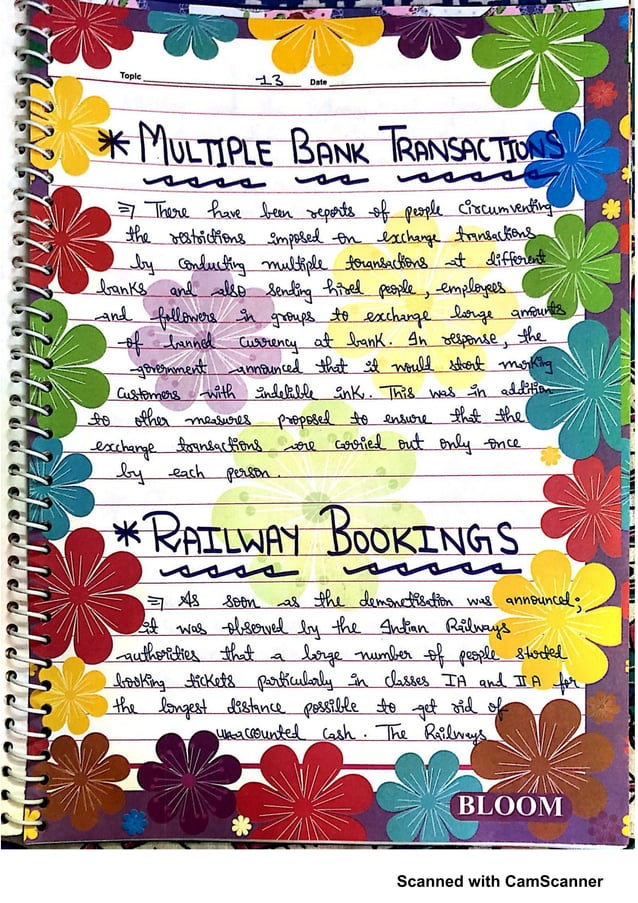 Topic 13 Date
* MULTIPLE BANK TRANSACTIONS
⇒ There have been reports of people circumventing
the restrictions imposed on exchange transactions
by conducting multiple transactions at different
banks and also sending hired people, employees
and followers in groups to exchange large amounts
of banned currency at bank. In response, the
government announced that it would start marking
customers with indelible ink. This was in addition
to other measures proposed to ensure that the
exchange transactions are carried out only once
by each person.
* RAILWAY BOOKINGS
⇒ As soon as the demonetisation was announced;
it was observed by the Indian Railways
authorities that a large number of people started
booking tickets particularly in classes IA and IIA for
the longest distance possible to get rid of
unaccounted cash. The Railways
BLOOM
Scanned with CamScanner